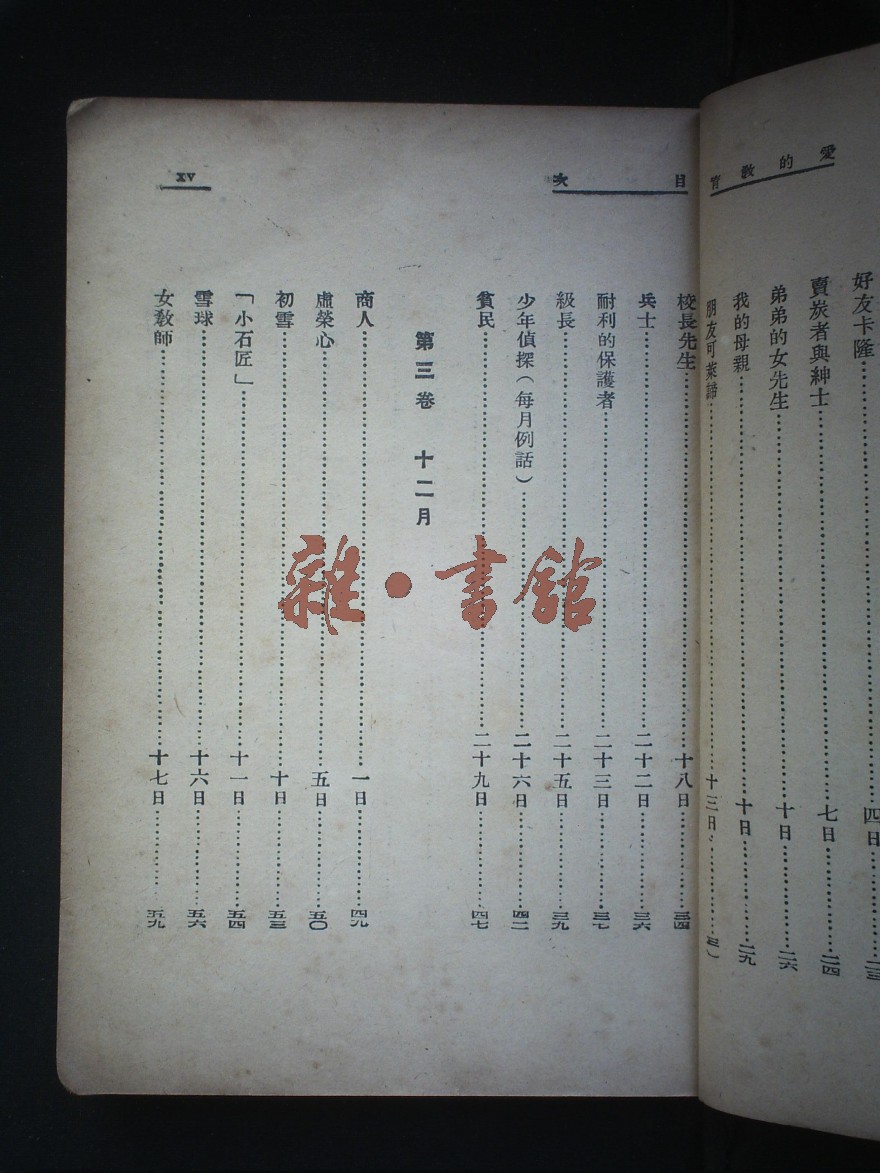 愛的教育
好友卡隆……四日……二三
賣炭者與紳士……七日……二四
弟弟的女先生……十日……二六
我的母親……十日……二九
朋友可萊諦……十三日……三〇
目次
XV
校長先生……十八日……三四
兵士……二十二日……三六
耐利的保護者……二十三日……三七
級長……二十五日……三九
少年偵探(每月例話)……二十六日……四二
貧民……二十九日……四七
第三卷 十二月
商人……一日……四九
虛榮心……五日……五〇
初雪……十日……五三
「小石匠」……十一日……五四
雪球……十六日……五六
女教師……十七日……五九
雜·書館